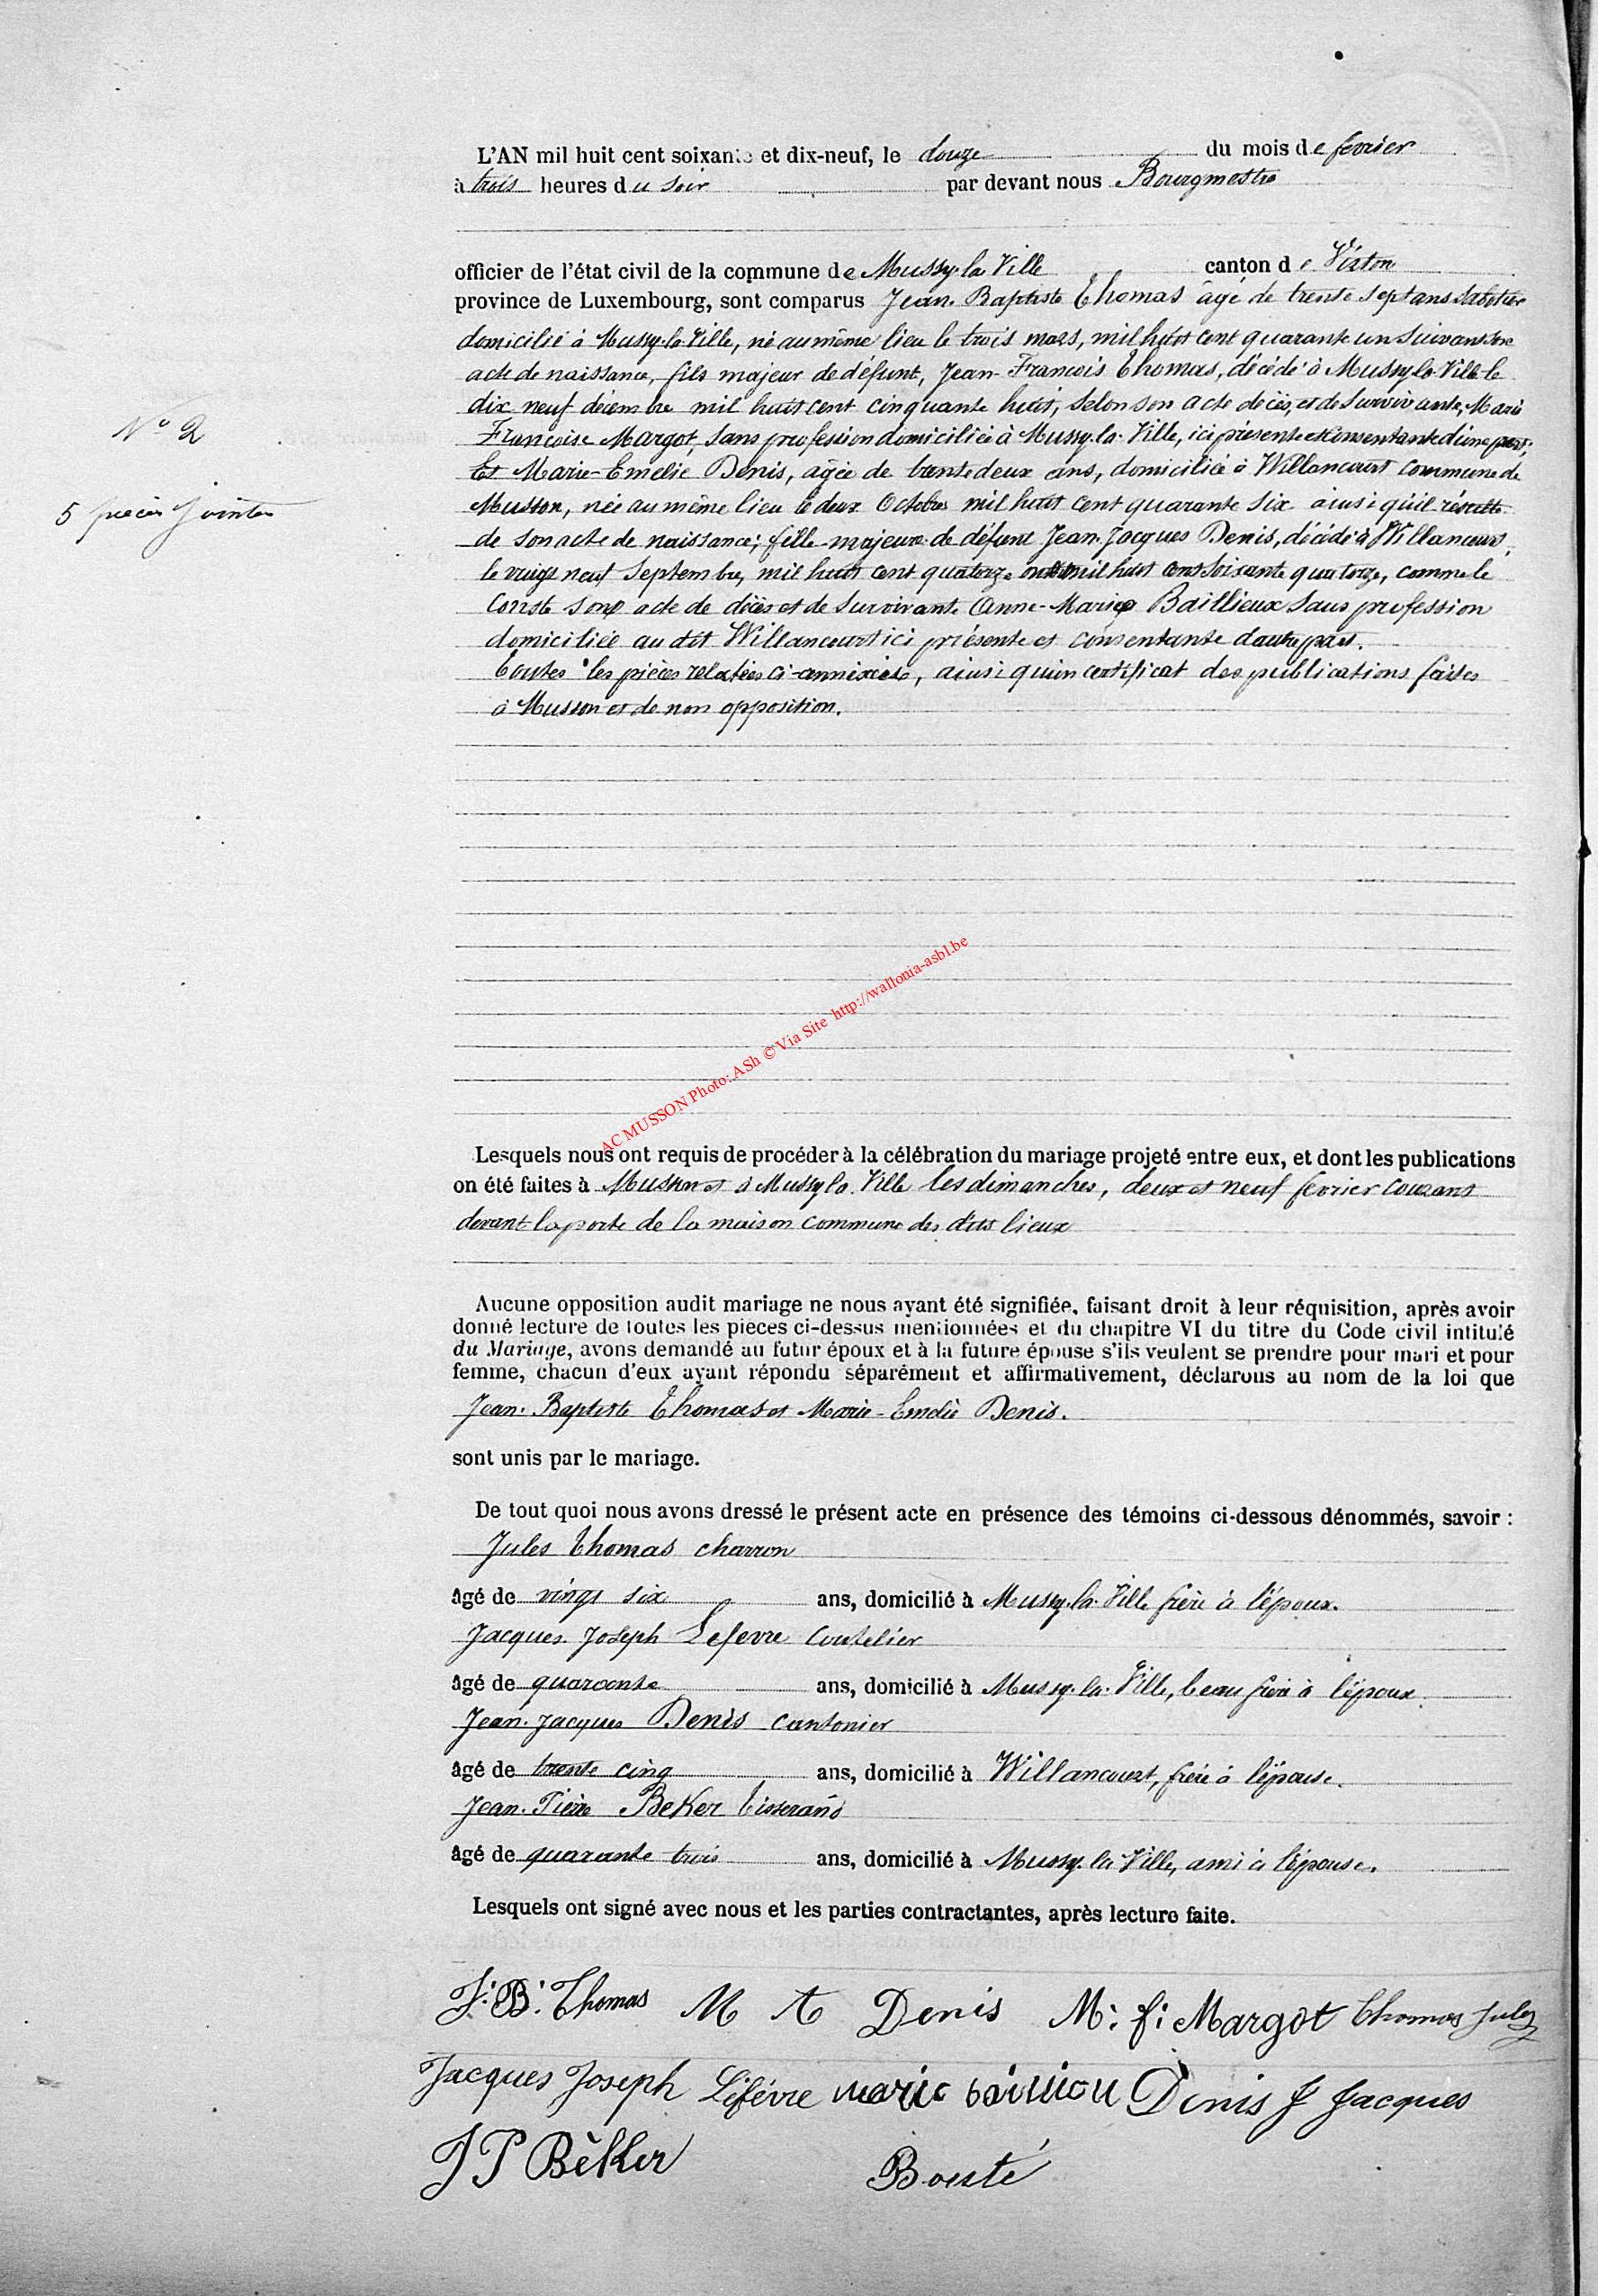 L'AN mil huit cent soixante et dix-neuf, le douze du mois de fevrier
à trois heures du soir par devant nous Bourgmestre
officier de l'état civil de la commune de Mussy-la-Ville canton de Virton
province de Luxembourg, sont comparus Jean-Baptiste Thomas âgé de trente sept ans sabotier
domicilié à Mussy-la-Ville, né au même lieu le trois mars, mil huit cent quarante un suivant son
acte de naissance, fils majeur de défunt, Jean-François Thomas, décédé à Mussy-la-Ville le
dix neuf décembre mil huit cent cinquante huit, selon son acte décès, et de survivante, Marie
N° 2
Françoise Margot, sans profession domiciliée à Mussy-la-Ville, ici présente et consentante d'une part;
Et Marie-Emelie Denis, âgée de trente deux ans, domiciliée à Willancourt commune de
5 pièces jointes
Musson, née au même lieu le deux Octobre mil huit cent quarante six ainsi qu'il résulte
de son acte de naissance; fille majeure de défunt Jean-Jacques Denis, décédé à Willancourt,
le vingt neuf Septembre, mil huit cent quatorze mil huit cent soixante quatorze, comme le
conste son acte de décès et de survivante Anne-Marie Baillieux sans profession
domiciliée au dit Willancourt ici présente et consentante d'autre part.
Toutes les pièces relatées ci-annexées, ainsi qu'un certificat des publications faites
à Musson et de non opposition.
AC MUSSON Photo: ASh © Via Site http://wallonia-asbl.be
Lesquels nous ont requis de procéder à la célébration du mariage projeté entre eux, et dont les publications
on été faites à Musson et à Mussy-la-Ville les dimanches, deux et neuf fevrier courant
devant la porte de la maison commune des dits lieux
Aucune opposition audit mariage ne nous ayant été signifiée, faisant droit à leur réquisition, après avoir
donné lecture de toutes les pièces ci-dessus mentionnées et du chapitre VI du titre du Code civil intitulé
du Mariage, avons demandé au futur époux et à la future épouse s'ils veulent se prendre pour mari et pour
femme, chacun d'eux ayant répondu séparément et affirmativement, déclarons au nom de la loi que
Jean-Baptiste Thomas et Marie-Emelie Denis.
sont unis par le mariage.
De tout quoi nous avons dressé le présent acte en présence des témoins ci-dessous dénommés, savoir :
Jules Thomas charron
âgé de vingt six ans, domicilié à Mussy-la-Ville frère à l'époux.
Jacques Joseph Lefevre coutelier
âgé de quarante ans, domicilié à Mussy-la-Ville, beau frère à l'époux.
Jean-Jacques Denis cantonier
âgé de trente cinq ans, domicilié à Willancourt, frère à l'épouse.
Jean-Pierre Beker tisserand
âgé de quarante trois ans, domicilié à Mussy-la-Ville, ami à l'épouse.
Lesquels ont signé avec nous et les parties contractantes, après lecture faite.
J. B. Thomas M Denis M. f. Margot Thomas Jules
Jacques Joseph Lefévre marie Denis J Jacques
J P Bèker Bouté